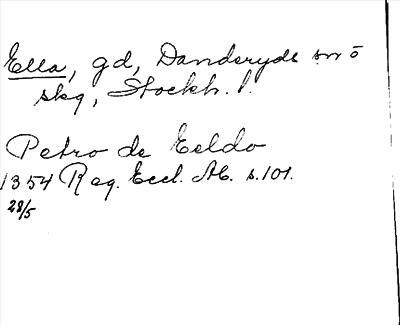 Ella, gd, Danderyds sn o
skg, Stockh. l.
Petro de Eeldo
1354 Reg. Eccl. Ab. s. 101.
28/5